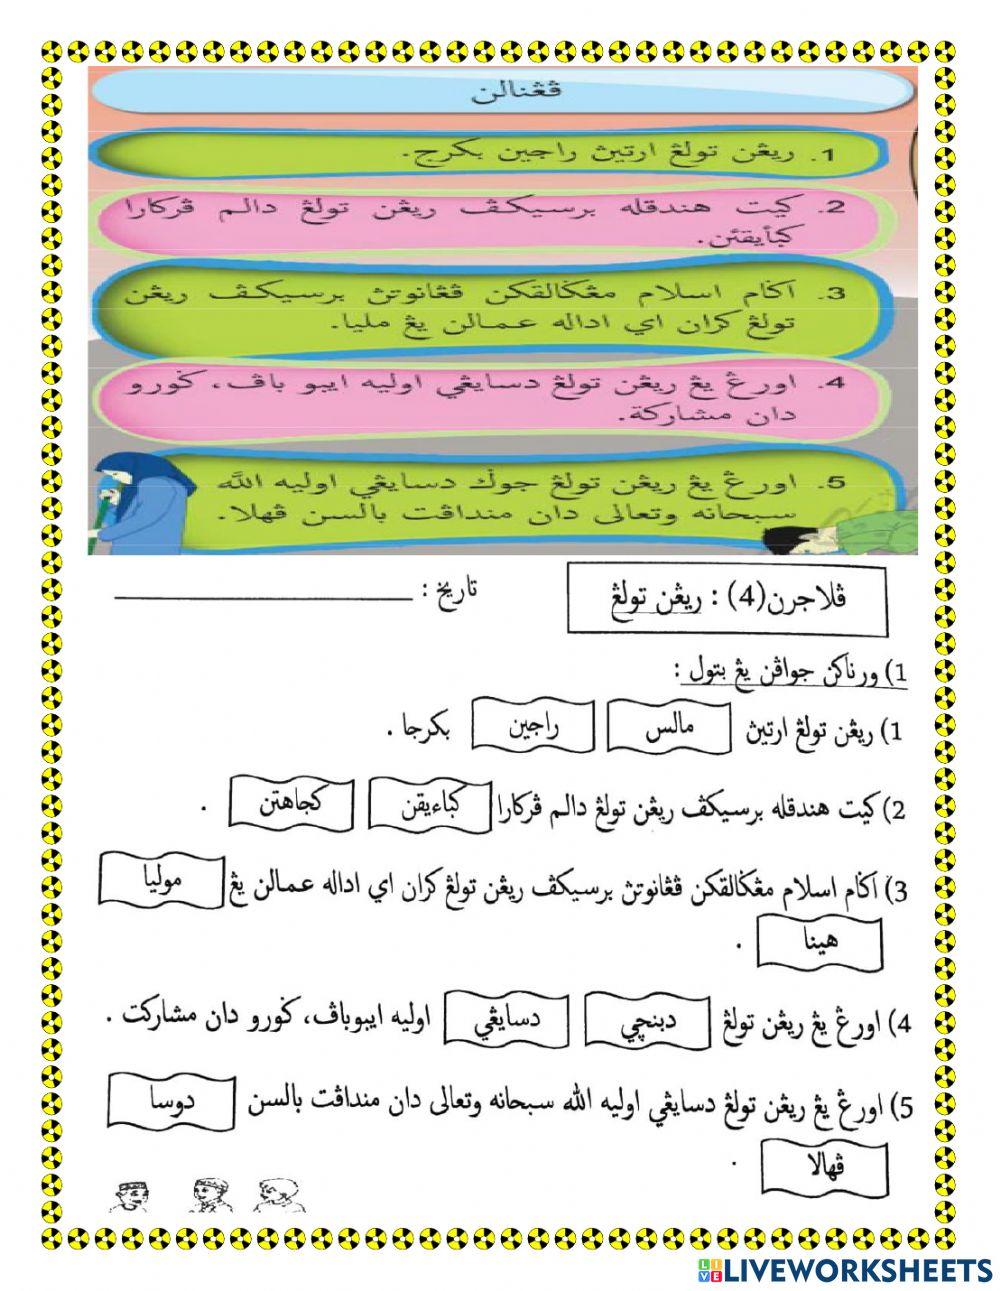 ڤڠنالن
1. ريڠن تولڠ ارتيڽ راجين بكرج.
2. كيت هندقله برسيكڤ ريڠن تولڠ دالم ڤركارا
كبأيقئن.
3. اݢام اسلام مڠݢالقكن ڤڠانوتڽ برسيكڤ ريڠن
تولڠ كران اي اداله عمالن يڠ مليا.
4. اورڠ يڠ ريڠن تولڠ دسايڠي اوليه ايبو باڤ، ݢورو
دان مشاركة.
5. اورڠ يڠ ريڠن تولڠ جوݢ دسايڠي اوليه الله
سبحانه وتعالى دان منداڤت بالسن ڤهلا.
ڤلاجرن(4) : ريڠن تولڠ
تاريخ : ____________________
1) ورناكن جواڤن يڠ بتول :
1) ريڠن تولڠ ارتيڽ مالس راجين بكرجا .
2) كيت هندقله برسيكڤ ريڠن تولڠ دالم ڤركارا كباءيقن كجاهتن .
3) اݢام اسلام مڠݢالقكن ڤڠانوتڽ برسيكڤ ريڠن تولڠ كران اي اداله عمالن يڠ موليا
هينا .
4) اورڠ يڠ ريڠن تولڠ دبنچي دسايڠي اوليه ايبوباڤ، ݢورو دان مشاركت .
5) اورڠ يڠ ريڠن تولڠ دسايڠي اوليه الله سبحانه وتعالى دان منداڤت بالسن دوسا
ڤهالا .
LIVE LIVEWORKSHEETS